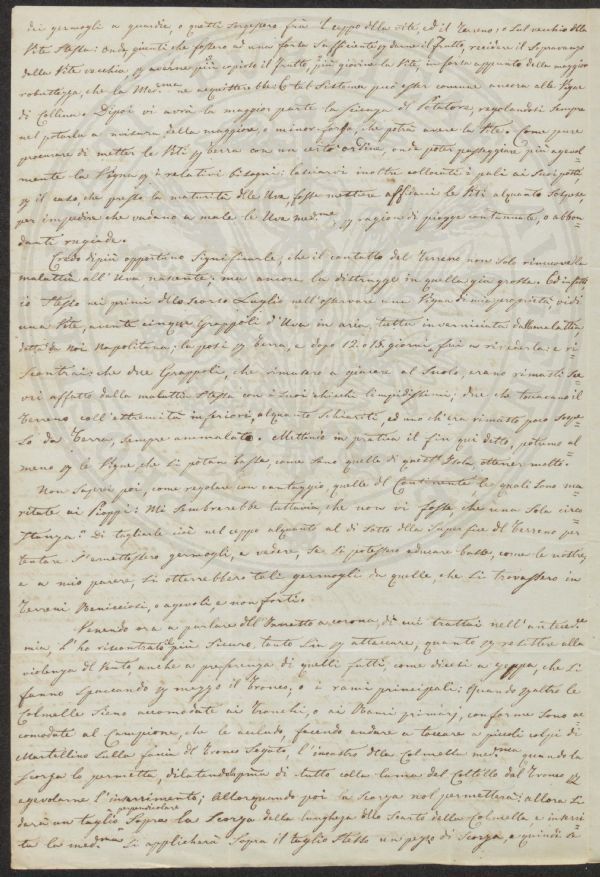 dei germogli a guardie, o questi sorgessero frà l ceppo della vite, ed il Terreno; o sul vecchio della
Vite stessa: Onde, giunti che fossero ad una forza sufficiente p darne il frutto, recidere il sopravanzo
della Vite vecchia, p averne più copioso il frutto, più giovine la Vite, in forza appunto della maggior
robustezza, che la Med.ma ne acquisterebbe: E tal Sistema può esser comune ancora alle Vigne
di Collina. Dipoi vi avrà la maggior parte la scienza del Potatore, regolandosi sempre
nel potarla a misura della maggiore, o minor forza, che potrà avere la Vite. Come pure
procurare di metter le Viti p terra con un certo ordine, onde poter passeggiare più agevol=
mente la Vigna p i relativi bisogni: lasciarvi inoltre collocati i pali ai suoi posti
p il caso, che presso la maturità dlle Uva, fosse mestiere affidare le Viti alquanto sospese,
per impedire che vadano a male le Uva med.me, p ragion di piogge continuate, o abbon=
danti rugiade.
Credo di più opportuno significarle, che il contatto del Terreno non solo rimuove la
malattia all'Uva nascente; ma ancora la distrugge in quella già grossa. Ed infatti
io stesso nei primi dllo scorso Luglio nell'osservare una Vigna di mia proprietà, vidi
una Vite, avente cinque Grappoli d'Uva in aria, tutta inverniciata dalla malattia
detta da Noi Napolitana; la posi p Terra, e dopo 12. o 15. giorni, fui a rivederla: e ri=
scontrai; che due Grappoli, che rimasero a giacere al Suolo, erano rimasti Se=
vri affatto dalla malattia stessa con i suoi chicchi limpidissimi; due che toccavano il
Terreno coll'estremità inferiori, alquanto schiariti, ed uno ch'era rimasto poco sospe=
so da Terra, sempre ammalato. Mettendo in pratica il fin qui detto, potremo al=
meno p le Vigne, che si potan basse, come sono quelle di quest'Isola, ottener molto.
Non saprei poi, come regolare con vantaggio quelle dl Continente, le quali sono ma=
ritate ai Pioppi: Mi sembrerebbe tuttavia, che non vi fosse, che una sola circo=
stanza: Di tagliarle cioè nel ceppo alquanto al di sotto dlla superficie dl Terreno per
tentare s'emettessero germogli, e vedere, se si potessero educare basse, come le nostre,
e a mio parere, si otterrebbero tali germogli da quelle, che si trovassero in
Terreni Renicciosi, o agevoli e non forti.
Venendo ora a parlare dll'Innesto a corona, di cui trattai nell'antece.te
mia, l'ho riscontrato il più sicuro, tanto sia p attaccare, quanto p resistere alla
violenza dl Vento, anche a preferenza di quelli fatti, come dicesi a zeppa, che si
fanno spaccando p mezzo il Tronco, o i rami principali: Quando p altro le
Colmelle sieno accomodate ai Tronchi, o ai Rami primarj, conforme sono ac=
comodate al Campione, che le accludo, facendo andare a toccare a piccoli colpi di
Martellino sulla faccia dl Tronco segato, l'incastro dlla Colmella med.ma, quando la
scorza lo permetta, dilatandola pma di tutto colla lama del Coltello dal Tronco p
agevolarne l'inserimento; Allorquando poi la scorza nol permetterà; allora si
darà un taglio perpendicolare sopra la Scorza della lunghezza dllo scarto della Colmella, e inseri=
ta la med.ma si applicherà sopra il taglio stesso un pezzo di Scorza, e quindi si=